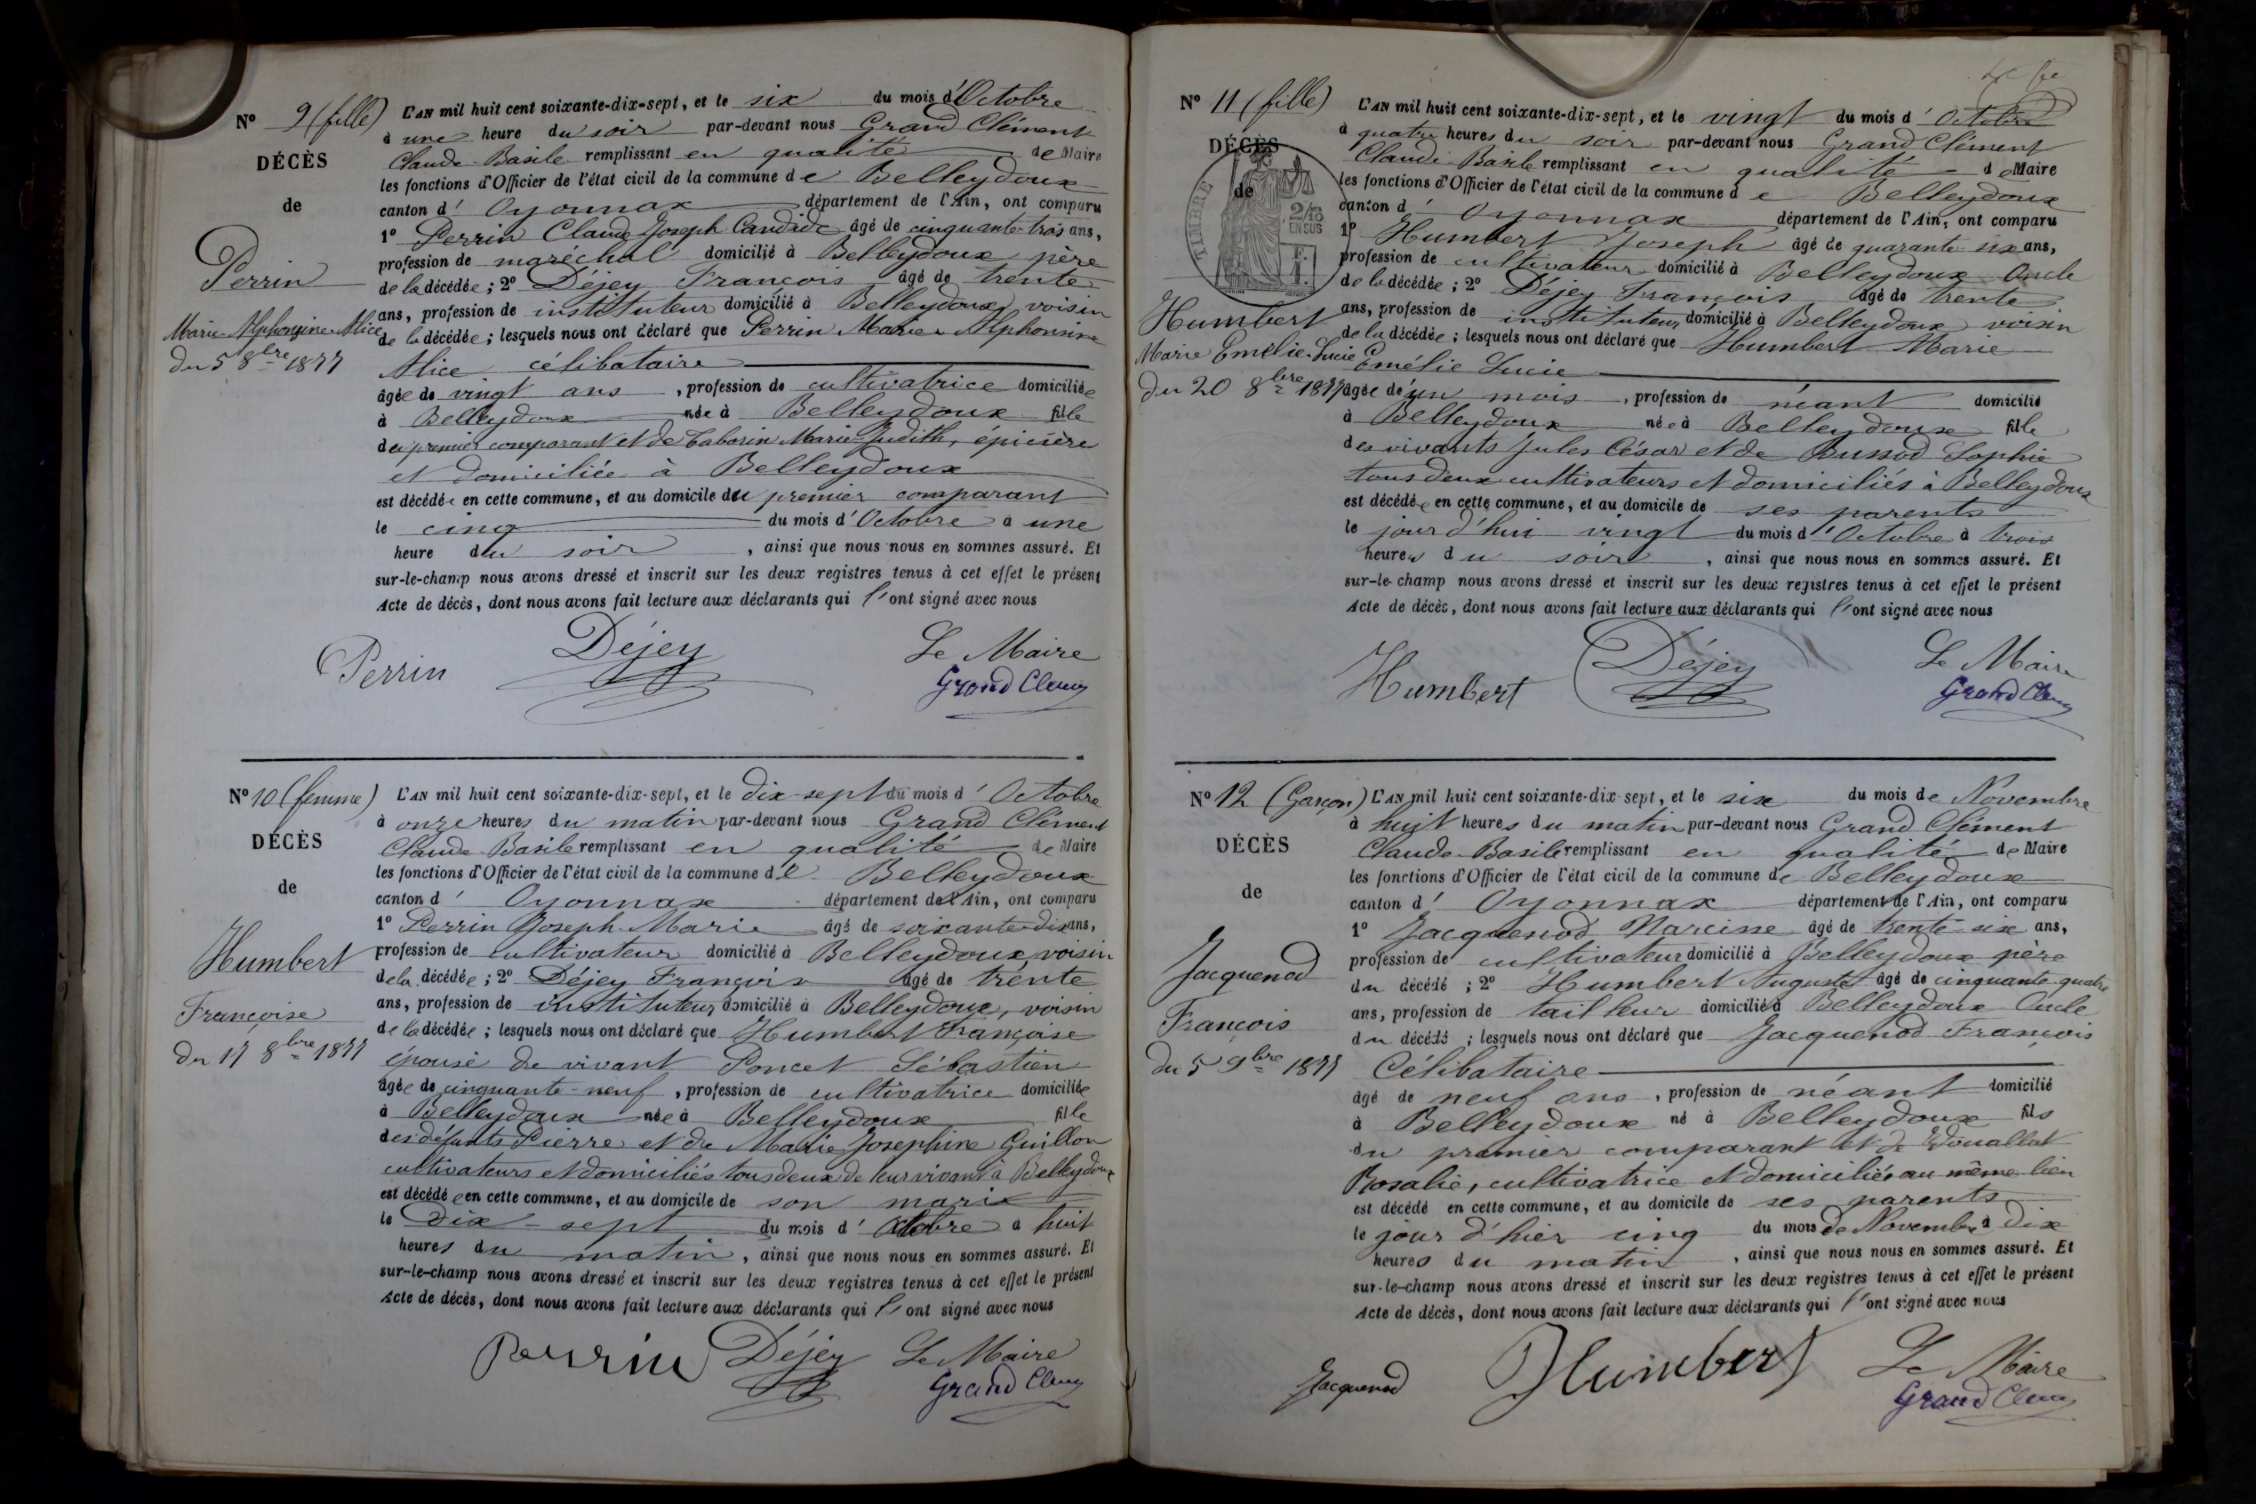 N° 9 (fille)
DÉCÈS
de
Perrin
Marie-Alphonsine-Alice
du 5 8bre 1877
L'AN mil huit cent soixante-dix-sept, et le six du mois d'Octobre
à une heure du soir par-devant nous Grand Clément
Claude-Basile remplissant en qualité de Maire
les fonctions d'Officier de l'état civil de la commune de Belleydoux
canton d'Oyonnax département de l'Ain, ont comparu
1° Perrin Claude Joseph Candide âgé de cinquante-trois ans,
profession de maréchal domicilié à Belleydoux, père
de la décédée ; 2° Déjey François âgé de trente
ans, profession de instituteur domicilié à Belleydoux, voisin
de la décédée ; lesquels nous ont déclaré que Perrin Marie-Alphonsine
Alice célibataire
âgée de vingt ans, profession de cultivatrice domiciliée
à Belleydoux née à Belleydoux fille
du premier comparant et de Tabourin Marie-Judith, épicière
et domiciliée à Belleydoux
est décédée en cette commune, et au domicile du premier comparant
le cinq du mois d'Octobre à une
heure du soir, ainsi que nous nous en sommes assuré. Et
sur-le-champ nous avons dressé et inscrit sur les deux registres tenus à cet effet le présent
Acte de décès, dont nous avons fait lecture aux déclarants qui l'ont signé avec nous
Perrin Déjey Le Maire
Grand Clém
N° 10 (femme)
DÉCÈS
de
Humbert
Françoise
du 17 8bre 1877
L'AN mil huit cent soixante-dix-sept, et le dix-sept du mois d'Octobre
à onze heures du matin par-devant nous Grand Clément
Claude-Basile remplissant en qualité de Maire
les fonctions d'Officier de l'état civil de la commune de Belleydoux
canton d'Oyonnax département de l'Ain, ont comparu
1° Perrin Joseph-Marie âgé de soixante-dix ans,
profession de cultivateur domicilié à Belleydoux, voisin
de la décédée ; 2° Déjey François âgé de trente
ans, profession de instituteur domicilié à Belleydoux, voisin
de la décédée ; lesquels nous ont déclaré que Humbert Françoise
épouse de vivant Poncet Sébastien
âgée de cinquante-neuf, profession de cultivatrice domiciliée
à Belleydoux née à Belleydoux fille
des défunts Pierre et de Marie Josephine Guillon
cultivateurs et domiciliés tous deux de leur vivant à Belleydoux
est décédée en cette commune, et au domicile de son mari
le dix-sept du mois d'Octobre à huit
heures du matin, ainsi que nous nous en sommes assuré. Et
sur-le-champ nous avons dressé et inscrit sur les deux registres tenus à cet effet le présent
Acte de décès, dont nous avons fait lecture aux déclarants qui l'ont signé avec nous
Perrin Déjey Le Maire
Grand Clém
N° 11 (fille)
DÉCÈS
de
TIMBRE
2/10
EN SUS
Humbert
Marie Emélie-Lucie
du 20 8bre 1877
L'AN mil huit cent soixante-dix-sept, et le vingt du mois d'Octobre
à quatre heures du soir par-devant nous Grand Clément
Claude-Basile remplissant en qualité de Maire
les fonctions d'Officier de l'état civil de la commune de Belleydoux
canton d'Oyonnax département de l'Ain, ont comparu
1° Humbert Joseph âgé de quarante-six ans,
profession de cultivateur domicilié à Belleydoux Oncle
de la décédée ; 2° Déjey François âgé de trente
ans, profession de instituteur domicilié à Belleydoux, voisin
de la décédée ; lesquels nous ont déclaré que Humbert Marie
Emélie Lucie
âgée de un mois, profession de néant domicilié
à Belleydoux née à Belleydoux fille
des vivants Jules César et de Bussod Sophie
tous deux cultivateurs et domiciliés à Belleydoux
est décédée en cette commune, et au domicile de ses parents
le jour d'hui vingt du mois d'Octobre à trois
heures du soir, ainsi que nous nous en sommes assuré. Et
sur-le-champ nous avons dressé et inscrit sur les deux registres tenus à cet effet le présent
Acte de décès, dont nous avons fait lecture aux déclarants qui l'ont signé avec nous
Humbert Déjey Le Maire
Grand Clém
N° 12 (Garçon)
DÉCÈS
de
Jacquenod
François
du 5 9bre 1877
L'AN mil huit cent soixante-dix-sept, et le six du mois de Novembre
à huit heures du matin par-devant nous Grand Clément
Claude-Basile remplissant en qualité de Maire
les fonctions d'Officier de l'état civil de la commune de Belleydoux
canton d'Oyonnax département de l'Ain, ont comparu
1° Jacquenod Narcisse âgé de trente-six ans,
profession de cultivateur domicilié à Belleydoux père
du décédé ; 2° Humbert Auguste âgé de cinquante-quatre
ans, profession de tailleur domicilié à Belleydoux Oncle
du décédé ; lesquels nous ont déclaré que Jacquenod François
Célibataire
âgé de neuf ans, profession de néant domicilié
à Belleydoux né à Belleydoux fils
du premier comparant et de
Rosalie, cultivatrice et domiciliés au même lieu
est décédé en cette commune, et au domicile de ses parents
le jour d'hier cinq du mois de Novembre à dix
heures du matin, ainsi que nous nous en sommes assuré. Et
sur-le-champ nous avons dressé et inscrit sur les deux registres tenus à cet effet le présent
Acte de décès, dont nous avons fait lecture aux déclarants qui l'ont signé avec nous
Jacquenod Humbert Le Maire
Grand Clém